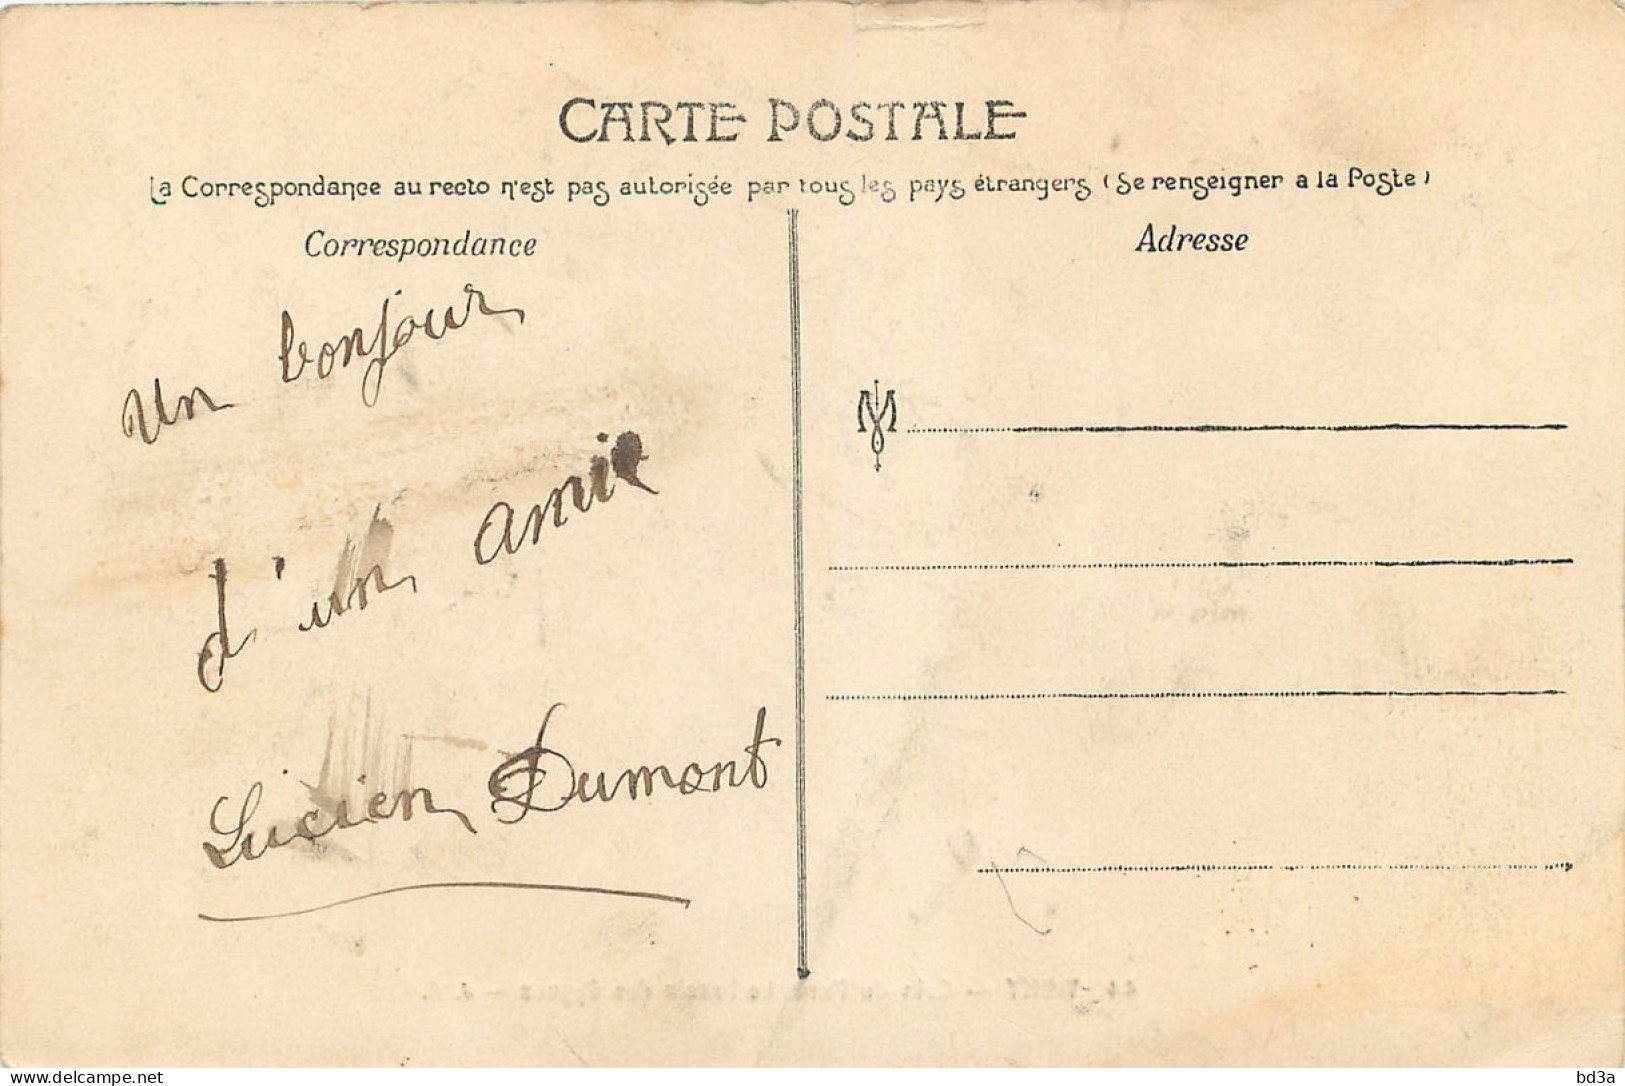 CARTE POSTALE
La Correspondance au recto n'est pas autorisée par tous les pays étrangers (Se renseigner a la Poste)
Correspondance
Un bonjour
d'un amie
Lucien Dumont
Adresse
M
delcampe.net
bd3a